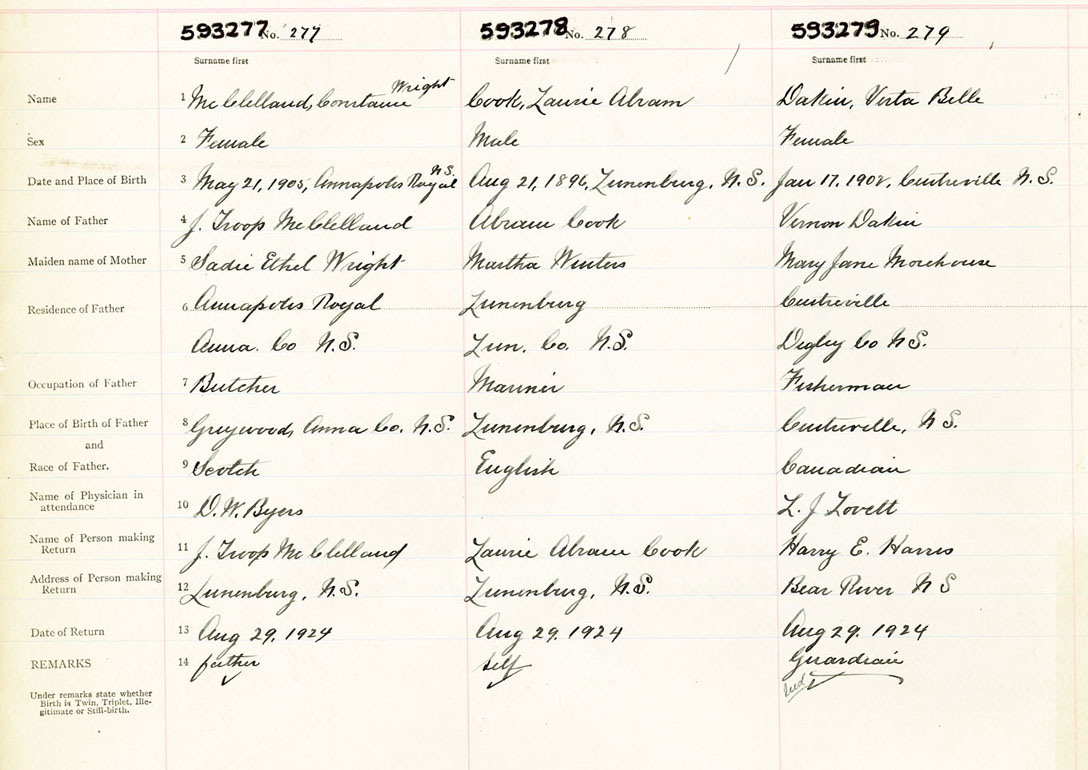 593277 No. 277 593278 No. 278 593279 No. 279
Surname first Surname first Surname first
Wright
Name 1 McClelland, Constance Cook, Laurie Abram Dakin, Verta Belle
Sex 2 Female Male Female
N.S.
Date and Place of Birth 3 May 21, 1905, Annapolis Royal Aug 21, 1896, Lunenburg, N.S. Jan 17, 1908, Centreville N.S.
Name of Father 4 J. Troop McClelland Abram Cook Vernon Dakin
Maiden name of Mother 5 Sadie Ethel Wright Martha Winters Mary Jane Morehouse
Residence of Father 6 Annapolis Royal Lunenburg Centreville
Anna. Co N.S. Lun. Co. N.S. Digby Co N.S.
Occupation of Father 7 Butcher Mariner Fisherman
Place of Birth of Father 8 Greywood, Anna Co. N.S. Lunenburg, N.S. Centreville, N S.
and
Race of Father. 9 Scotch English Canadian
Name of Physician in
attendance 10 D. W. Byers L. J Lovett
Name of Person making
Return 11 J. Troop McClelland Laurie Abram Cook Harry E. Harris
Address of Person making
Return 12 Lunenburg, N.S. Lunenburg, N.S. Bear River N S
Date of Return 13 Aug 29, 1924 Aug 29, 1924 Aug 29, 1924
REMARKS 14 father self Guardian
Under remarks state whether
Birth is Twin, Triplet, Ille-
gitimate or Still-birth.